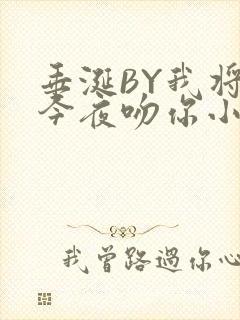 垂涎BY我将
今夜吻你小
我曾路過你心